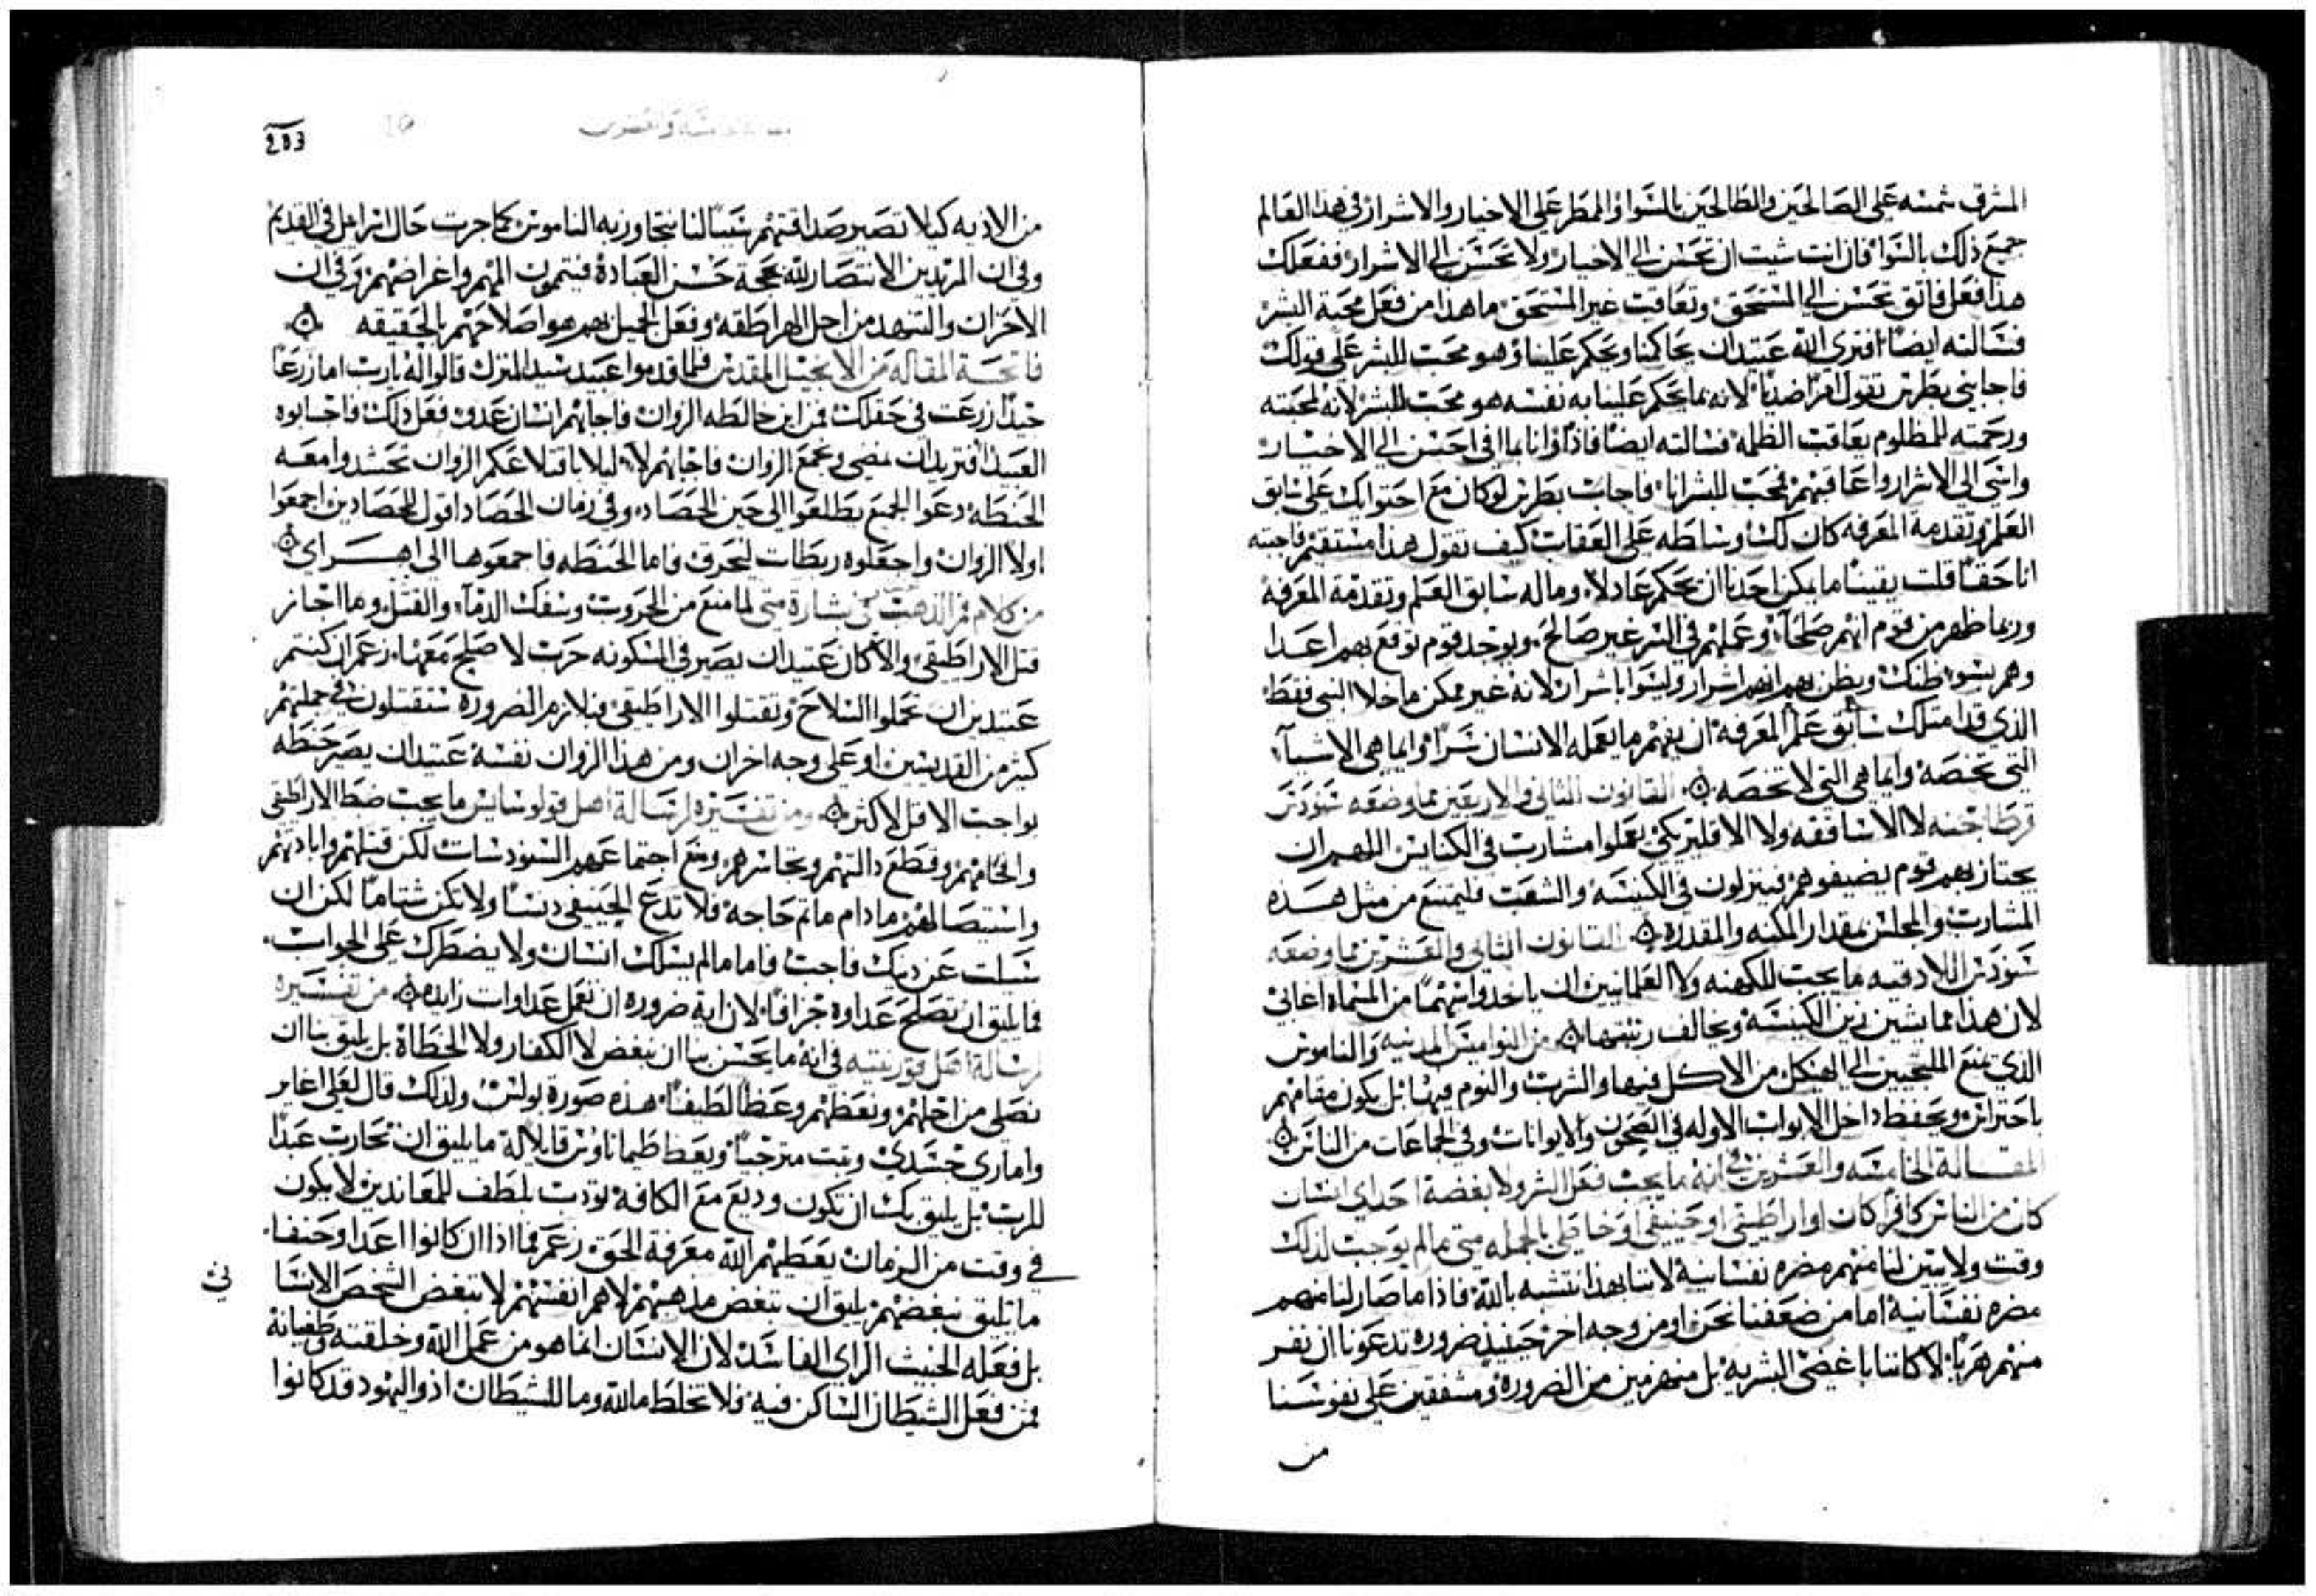 المشرق شمسه على الصالحين والطالحين بالسوا والمطر على الاخيار والاشرار في هذا العالم
جميع ذلك بالسوا فان انت شيت ان تحسن الى الاخيار ولا تحسن الى الاشرار ففعلك
هذا فعل فاتق تحسن الى المستحق وتعاقب غير المستحق ما هذا من فعل محبة البشر
فسالته ايضا افترى الله عتيد ان يحاكمنا ويحكم علينا وهو محب للبشر على قولك
فاجابني بطرس تقول قولا ضديا لانه بما يحكم علينا به نفسه هو محب للبشر لانه لمحبته
ورحمته للمظلوم يعاقب الظلمه فسالته ايضا فاذا وانا بما اني احسن الى الاخيار
واسي الى الاشرار واعاقبهم فمحب للبشر انا فاجاب بطرس لو كان مع احتوايك على سابق
العلم وتقدمة المعرفه كان لك وساطه على العقاب كيف تقول هذا مستقيم فاجبته
انا حقا قلت يقينا ما يمكن احدنا ان يحكم عادلا وما له سابق العلم وتقدمة المعرفة
وربما ظهر من قوم انهم صلحآ وعملهم في السر غير صالح ويوجد قوم توقع بهم اعدا
وهم بسو ظنك ويظن بهم انهم اشرار وليسوا باشرار لانه غير ممكن ما خلا النبي فقط
الذي قد امتلك سابق علم المعرفه ان يفهم ما يعمله الانسان سرا وايما هي الاشيآ
التي تخصه وايما هي التي لا تخصه القانون الثاني والاربعين مما وضعه سنودس
قرطاجنه لا الاساقفه ولا الاقليرس يعملوا مشارب في الكنايس اللهم ان
يجتاز بهم قوم يضيفوهم فينزلون في الكنيسه والشعب فليمتنع من مثل هذه
المشارب والمجالس بمقدار المكنه والمقدره القانون الثاني والعشرين مما وضعه
سنودس اللادقيه ما يجب للكهنه ولا العلمانيين ان ياخدوا سهما من المسماه اغابي
لان هذا مما يشين زين الكنيسه ويخالف رتبتها من النواميس المدنيه والناموس
الذي يمنع الملتجيين الى الهيكل من الاكل فيها والشرب والنوم فيها بل يكون مقامهم
باحتراس ويحفظ داخل الابواب الاوله في الصحون والايوانات وفي الجماعات من الناس
المقالة الخامسه والعشرين في انه ما يجب فعل الشر ولا بغضة احد اي انسان
كان من الناس كافرا كان او اراطيقي او حنيفي او خاطي بالجمله متى ما لم يوجب لذلك
وقت ولا يتبين لنا منهم مضره نفسانية لاننا بهذا نتشبه بالله فاذا ما صار لنا منهم
مضره نفسانية اما من ضعفنا نحن او من وجه اخر حينيذ ضروره تدعونا ان نفر
منهم هربا لا كاننا باغضي البشريه بل منهزمين من الضروره ومشفقين على نفوسنا
من
283
من الاديه كيلا تصير صداقتهم سببا لنا بتجاوزبه الناموس كما جرت حال اسرائيل في القديم
وفي ان المريدين الانتصار لله بحجة حسن العبادة فيتمون المهم واغراضهم وفي ان
الاحزان والتنهد من اجل الهراطقه وفعل الجميل بهم هو اصلاحهم بالحقيقه
فاتحة المقاله من الانجيل المقدس فلما قدموا عبيد سيد المنزل قالوا له يارب اما زرعا
جيدا زرعت في حقلك فمن اين خالطه الزوان فاجابهم انسان عدو فعل ذلك فاجابوه
العبيد افتريد ان نمضي ونجمع الزوان فاجابهم لا ليلا باقتلاعكم الزوان تحشدوا معه
الحنطه دعوا الجمع يطلعوا الى حين الحصاد وفي زمان الحصاد اقول للحصادين اجمعوا
اولا الزوان واجعلوه ربطات ليحرق فاما الحنطه فاجمعوها الى اهراي
من كلام فم الذهب في بشارة متى لما منع من الحروب وسفك الدمآ والقتل وما اجاز
قتل الاراطيقي والا كان عتيد ان يصير في المسكونه حرب لا صلح معها زعم ان كنتم
عتيدين ان تحملوا السلاح وتقتلوا الاراطيقي فبلازم الضروره ستقتلون في جملتهم
كثير من القديسين او على وجه اخر ان ومن هذا الزوان نفسه عتيد ان يصير حنطه
بواجب الاقل لاكثر ومن تفسيره لرسالة اهل قولوسايس ما يجب ضبط الاراطيقي
وافحامهم وقطع دالتهم وتجاسرهم ومنع اجتماعهم السنودسات لكن قتلهم وابادتهم
واستيصالهم ما دام ما تم حاجه فلا تدع الحنيفي دنسا ولا تكن شتاما لكن ان
سيلت عن دينك فاجب فاما ما لم يسلك انسان ولا يضطرك على الجواب
فما يليق ان تصلح عداوه جزافا لان اية ضروره ان نعمل عداوات زايده من تفسيره
لرسالة اهل قورنتيه في انه ما يحسن بنا ان نبغض لا الكفار ولا الخطاة بل يليق بنا ان
نصلي من اجلهم ونعظهم وعظا لطيفا هذه صورة بولس ولذلك قال لعلي اغاير
واماري جسدي وثبت مترجيا ويعظ طيماتاوس قايلا له ما يليق ان تحارب عبدا
للرب بل يليق بك ان تكون وديع مع الكافة تودب بلطف للمعاندين لا يكون
في وقت من الزمان يعطيهم الله معرفة الحق زعم فما اذا ان كانوا اعدا وحنفا
ما يليق نبغضهم يليق ان نبغض مذهبهم لا هم انفسهم لا تبغض الشخص الانسا
ني
بل فعله الخبيث الراي الفاسد لان الانسان انما هو من عمل الله وخلقته وطغيانه
فمن فعل الشيطان الساكن فيه فلا تخلط ما لله وما للشيطان اذ واليهود قد كانوا